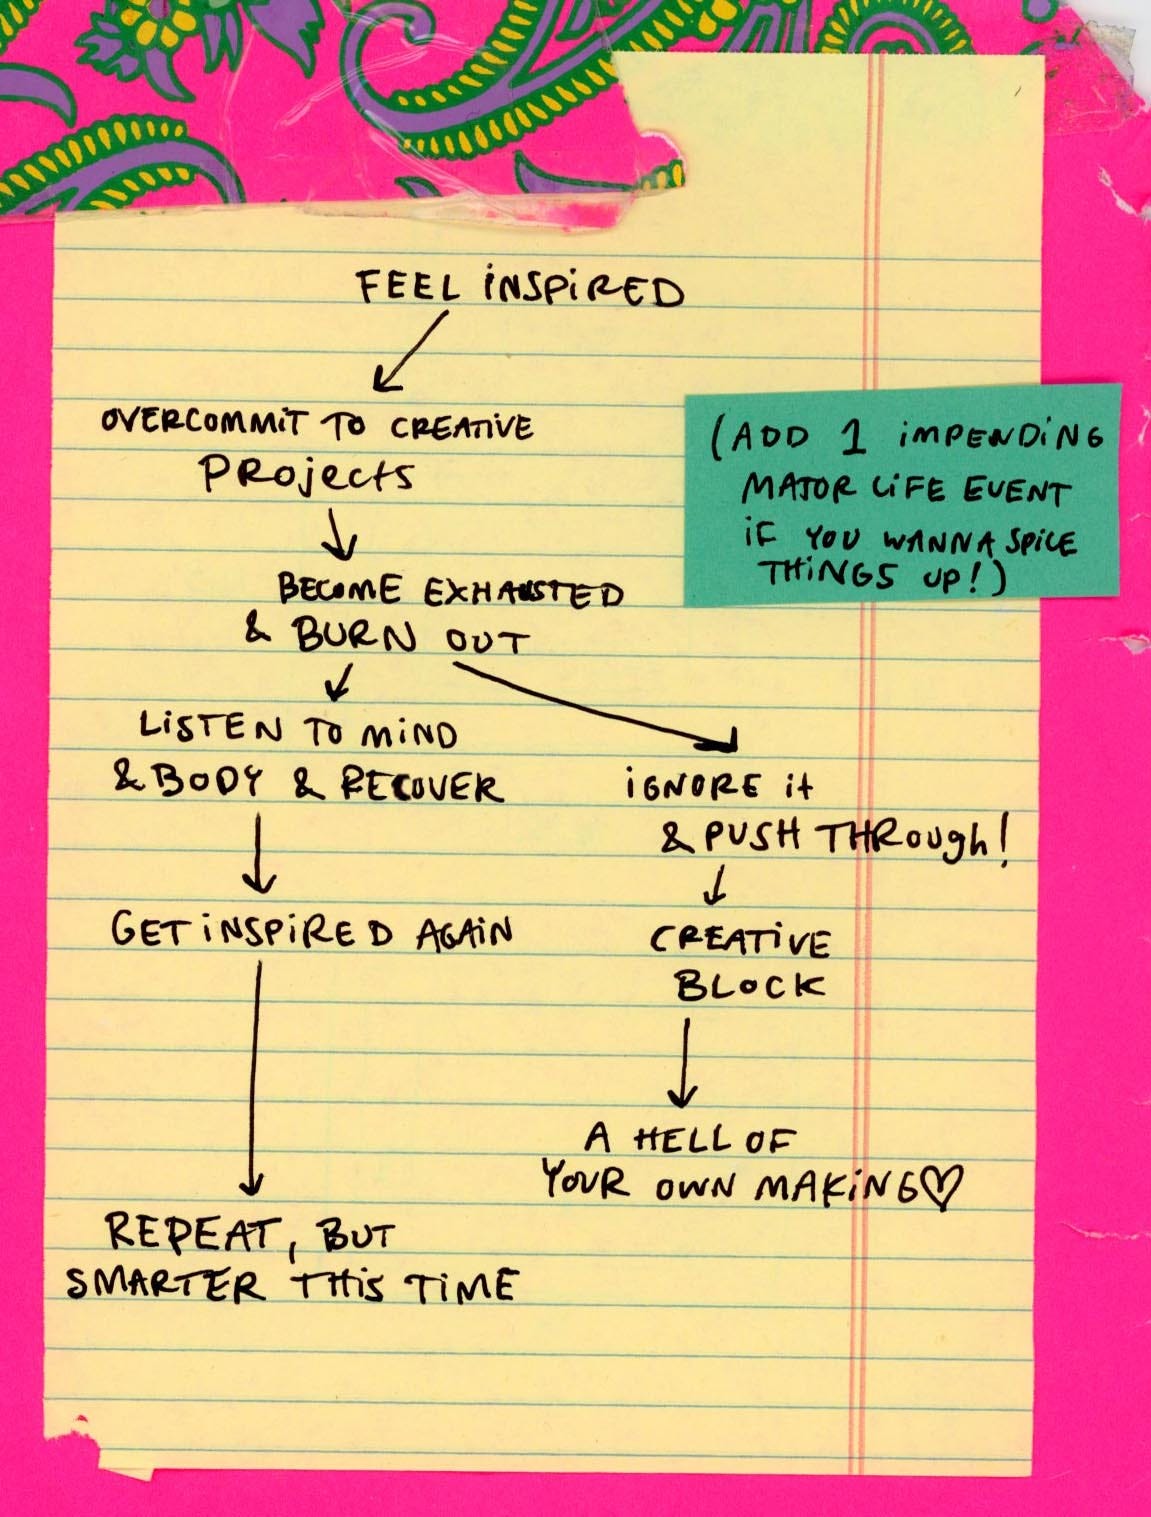 FEEL INSPIRED
OVERCOMMIT TO CREATIVE
PROjECTS
(ADD 1 IMPENDING
MAJOR LIFE EVENT
IF YOU WANNA SPICE
THINGS UP!)
BECOME EXHAUSTED
& BURN OUT
LISTEN TO MIND
& BODY & RECOVER
IGNORE it
& PUSH THROugh!
GET INSPIRED AGAIN
CREATIVE
BLOCK
A HELL OF
YOUR OWN MAKING♡
REPEAT, BUT
SMARTER THIS TIME